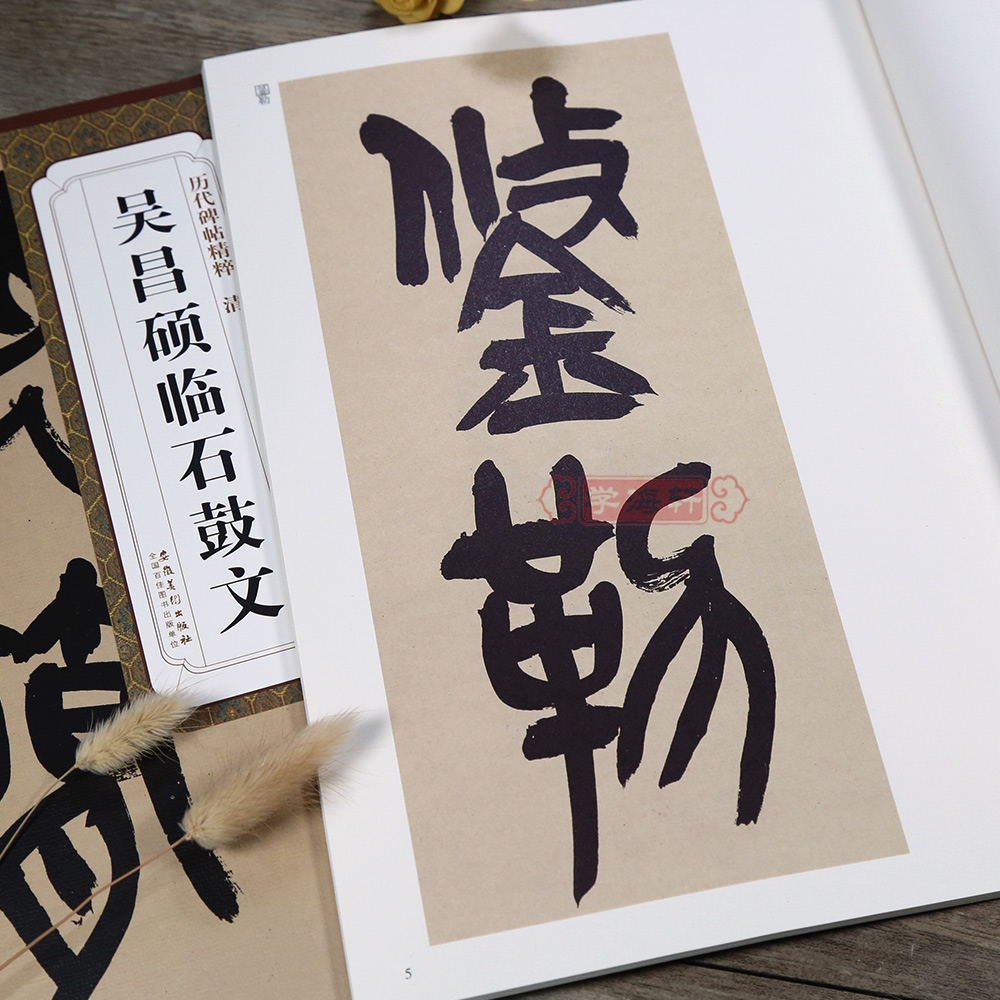 历代碑帖精粹 清
吴昌硕临石鼓文
安徽美术出版社
全国百佳图书出版单位
鋚勒
鋚勒
学海轩
5